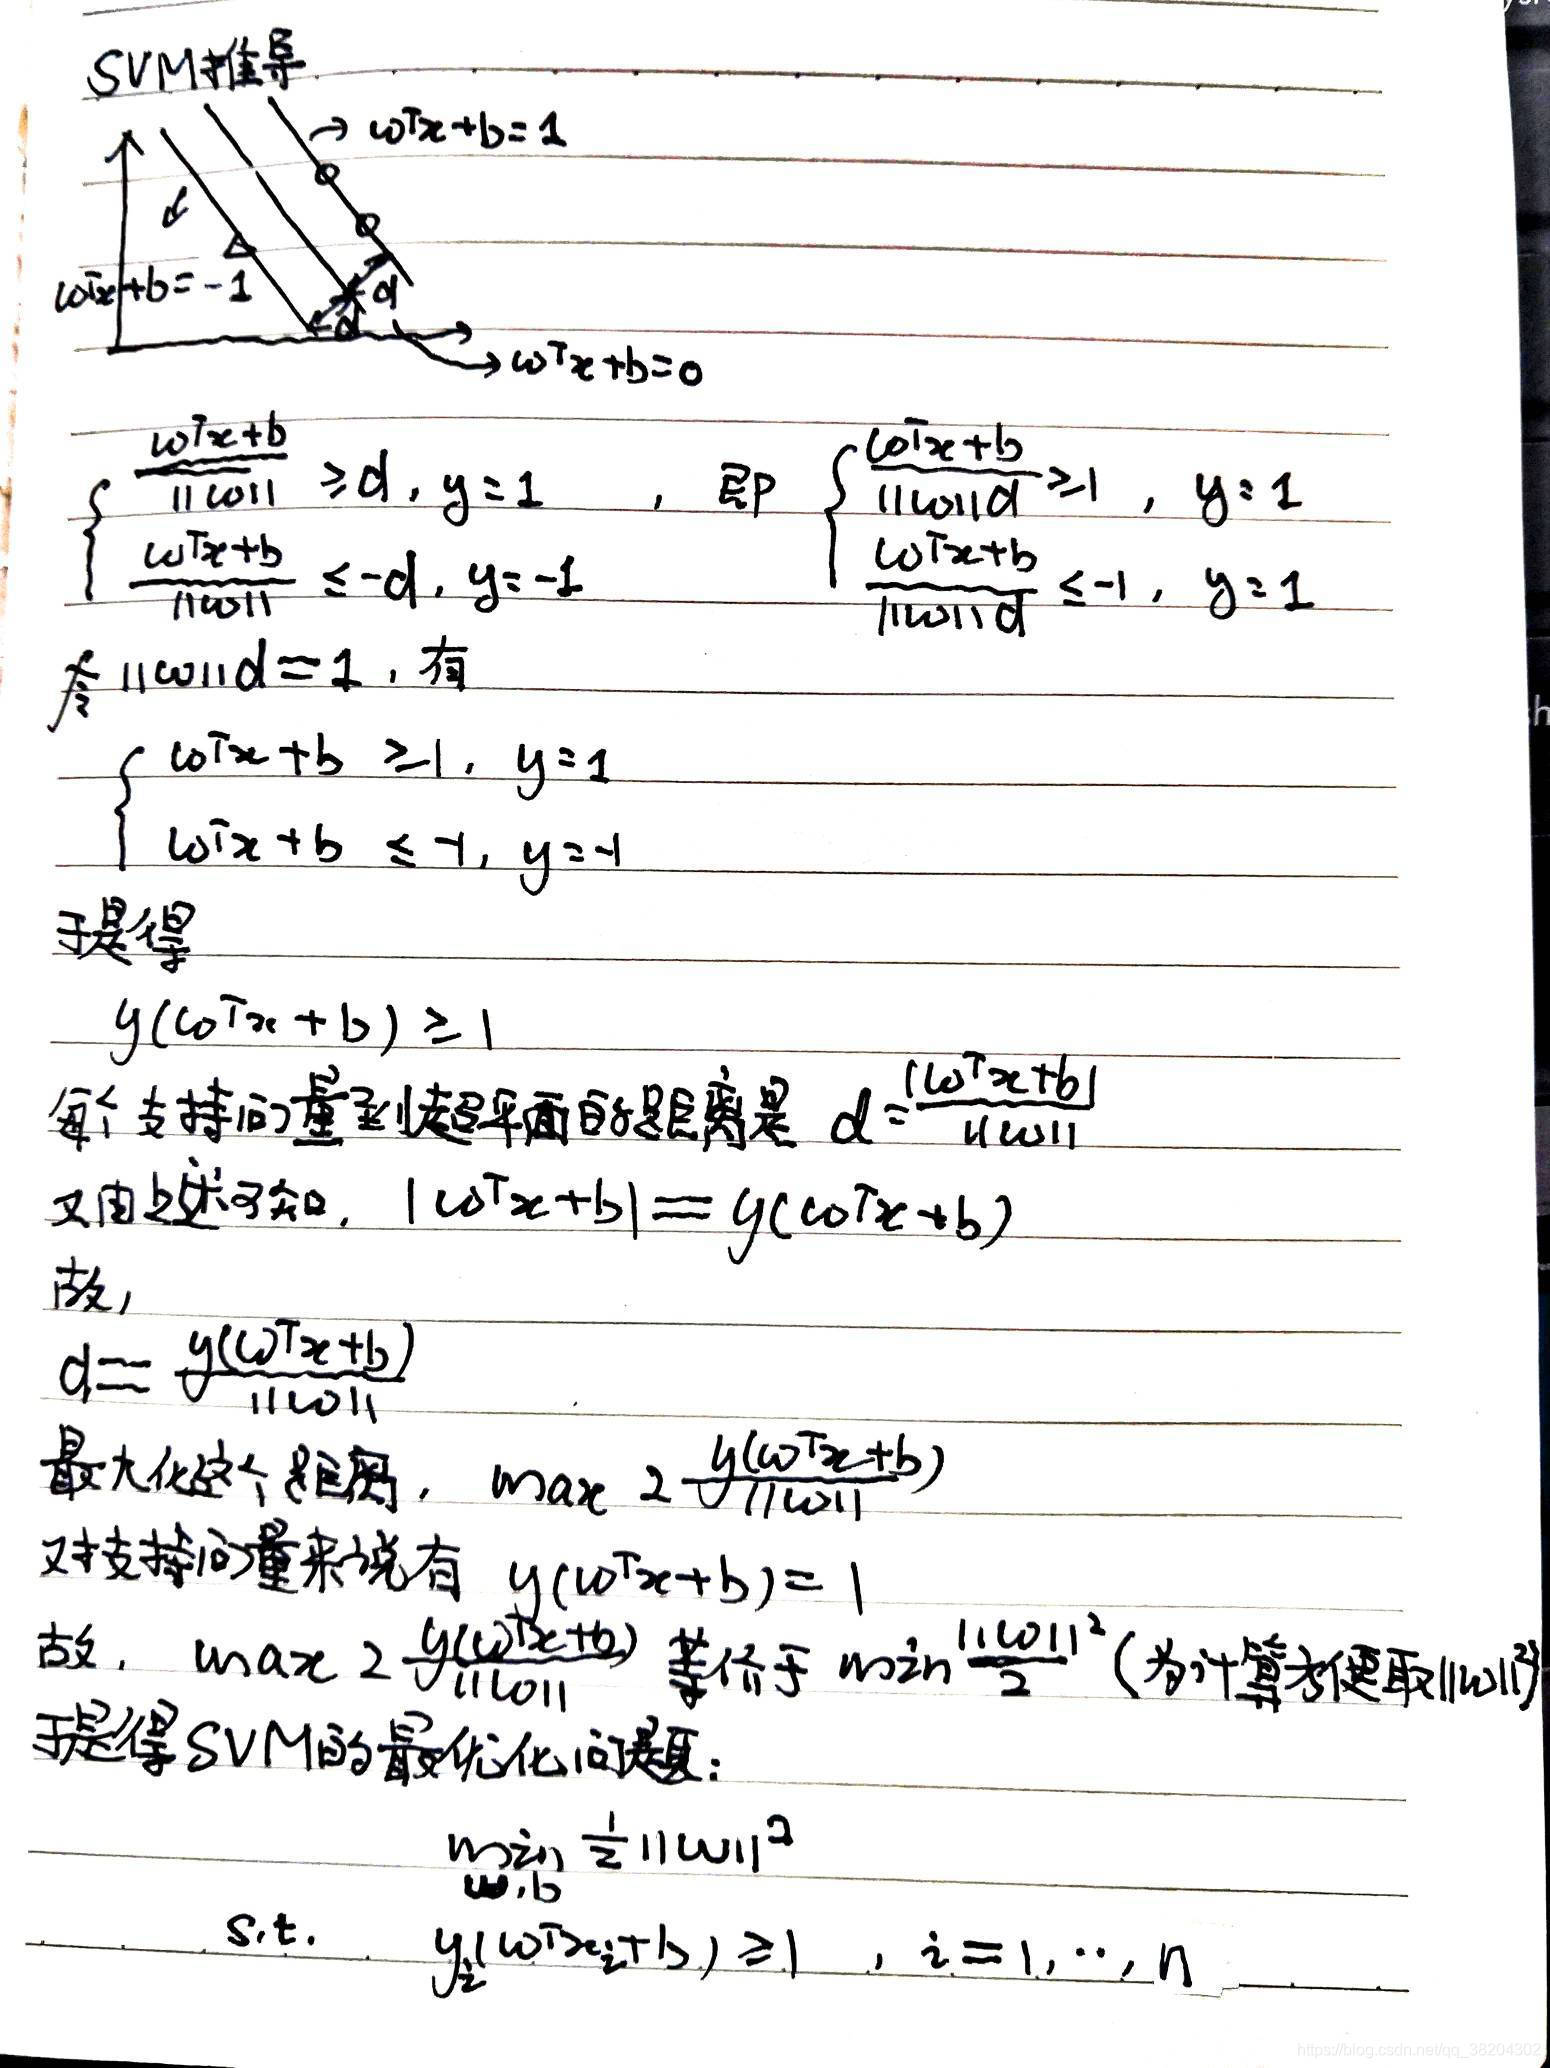 SVM推导
ωᵀx+b=1
ωᵀx+b=-1
d
d
ωᵀx+b=0
{ (ωᵀx+b)/||ω|| ≥d, y=1 , 即 { (ωᵀx+b)/(||ω||d) ≥1, y=1
(ωᵀx+b)/||ω|| ≤-d, y=-1 (ωᵀx+b)/(||ω||d) ≤-1, y=1
令||ω||d=1, 有
{ ωᵀx+b ≥1, y=1
ωᵀx+b ≤-1, y=-1
于是得
y(ωᵀx+b)≥1
每个支持向量到超平面的距离是 d=|ωᵀx+b|/||ω||
又由上述可知, |ωᵀx+b|=y(ωᵀx+b)
故,
d= y(ωᵀx+b)/||ω||
最大化这个距离, max 2 y(ωᵀx+b)/||ω||
对支持向量来说有 y(ωᵀx+b)=1
故, max 2 y(ωᵀx+b)/||ω|| 等价于 min ||ω||²/2 (为计算方便取||ω||²)
于是得SVM的最优化问题:
min ½||ω||²
ω,b
s.t. yᵢ(ωᵀxᵢ+b)≥1 , i=1,..,n
https://blog.csdn.net/qq_38204302